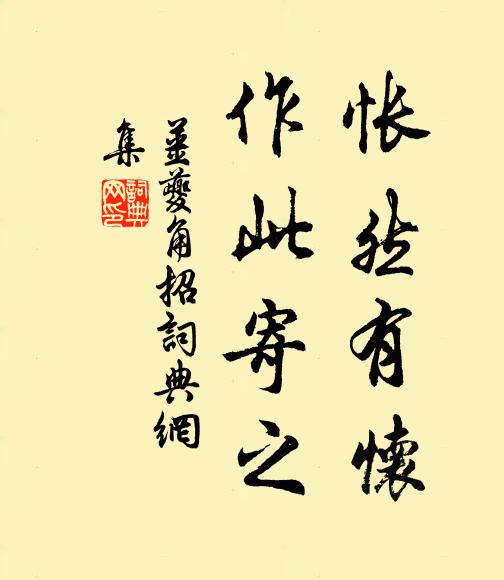 悵然有懷
作此寄之
姜夔角招詞典網
集
詞典网印